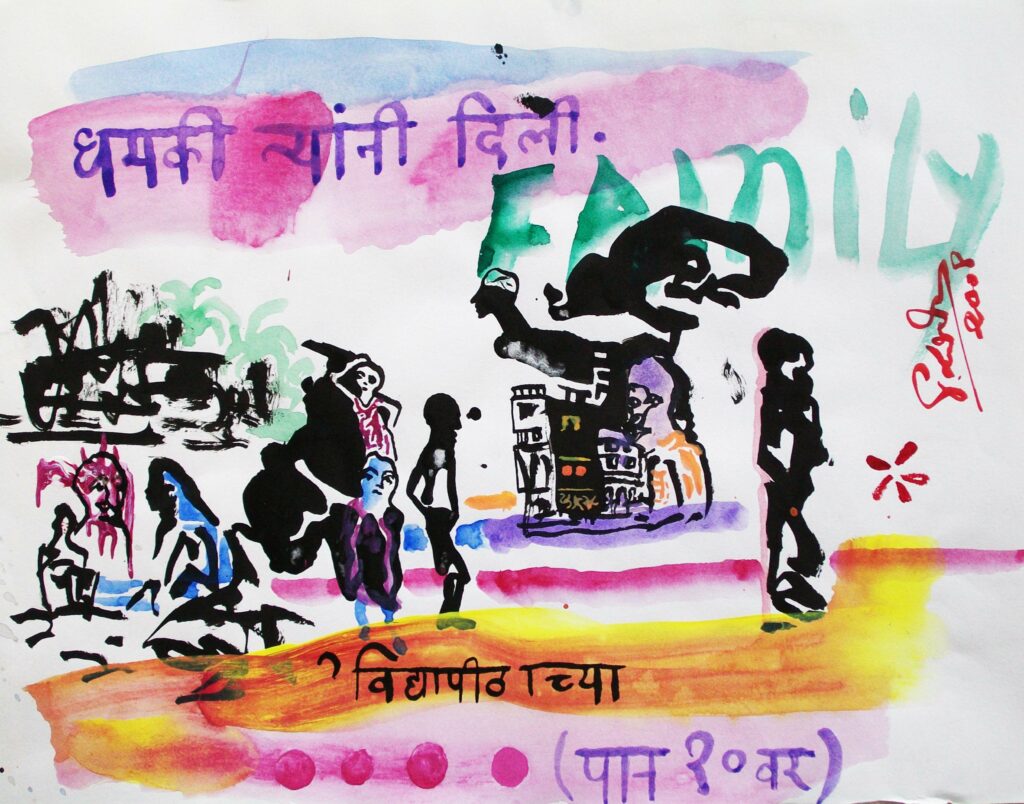 धमकी त्यांनी दिली.
FAMILY
2008
विद्यापीठाच्या
(पान १० वर)